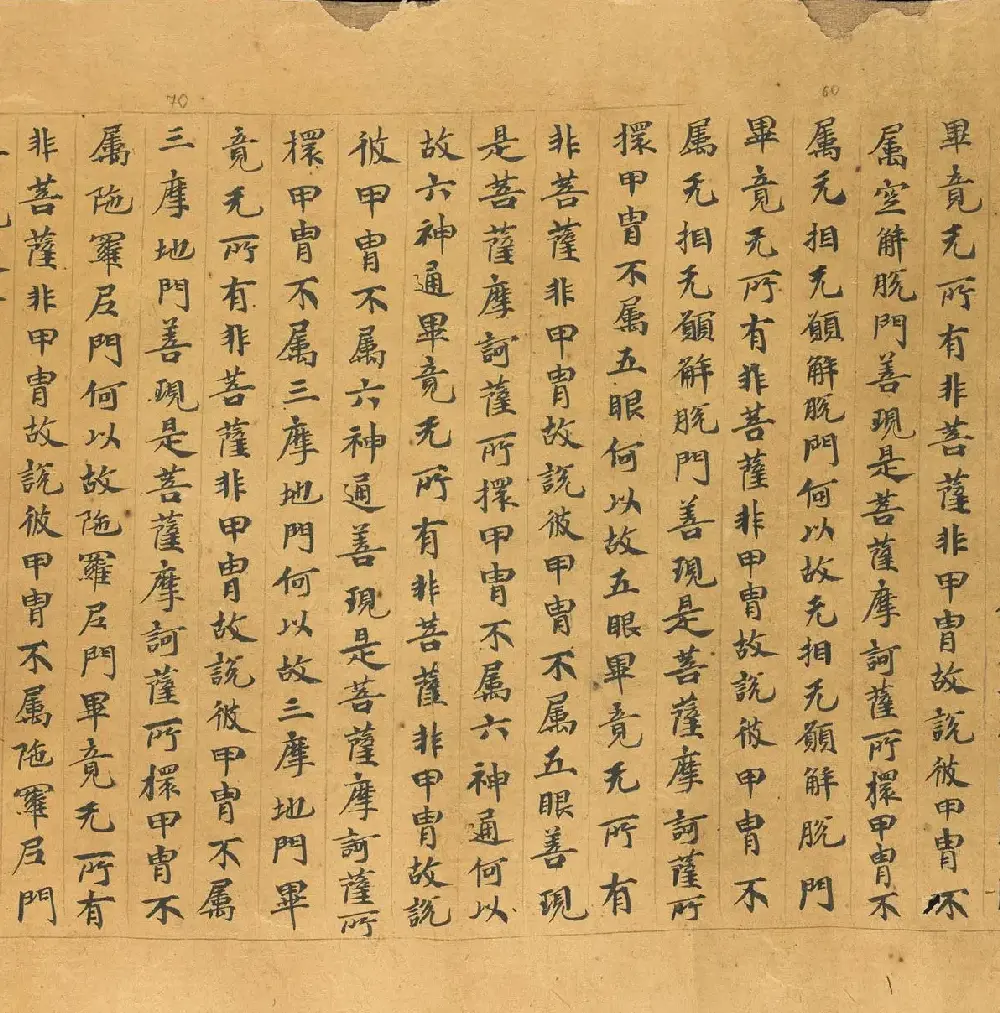 畢竟无所有非菩薩非甲冑故說彼甲冑不
属空解脫門善現是菩薩摩訶薩所擐甲冑不
属无相无願解脫門何以故无相无願解脫門
畢竟无所有非菩薩非甲冑故說彼甲冑不
属无相无願解脫門善現是菩薩摩訶薩所
擐甲冑不属五眼何以故五眼畢竟无所有
非菩薩非甲冑故說彼甲冑不属五眼善現
是菩薩摩訶薩所擐甲冑不属六神通何以
故六神通畢竟无所有非菩薩非甲冑故說
彼甲冑不属六神通善現是菩薩摩訶薩所
擐甲冑不属三摩地門何以故三摩地門畢
竟无所有非菩薩非甲冑故說彼甲冑不属
三摩地門善現是菩薩摩訶薩所擐甲冑不
属陁羅尼門何以故陁羅尼門畢竟无所有
非菩薩非甲冑故說彼甲冑不属陁羅尼門
60
70